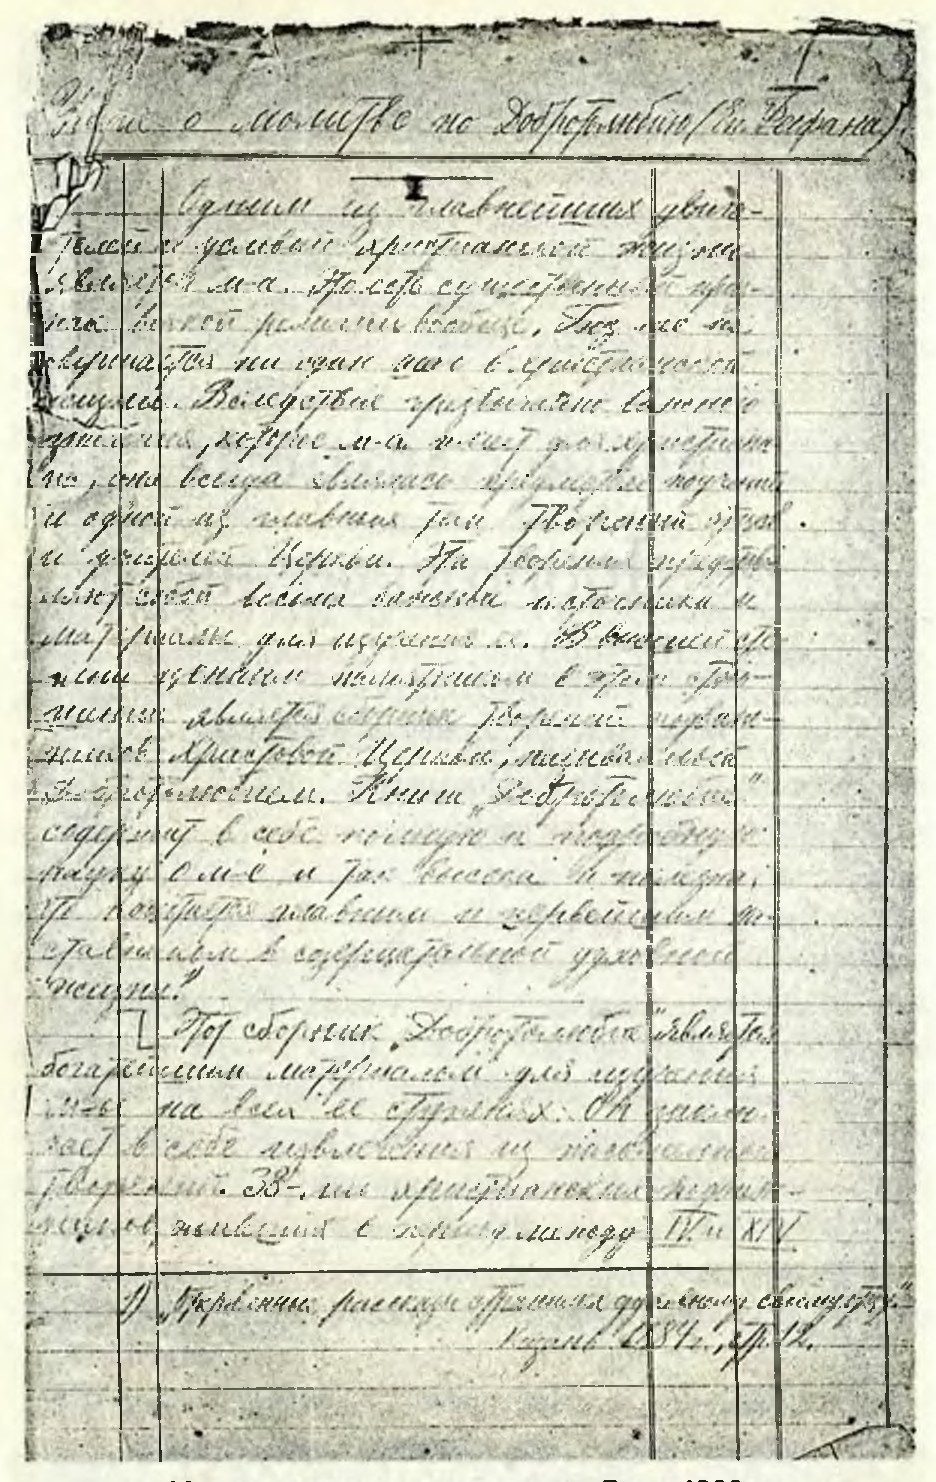 о молитве по Добротолюбию (Еп. Феофана).
I
Одним из главнейших двига-
телей и условий христианской жизни
является м-а.
религии вообще. Без
ни один шаг в христианской
жизни. Вследствие чрезвычайно важного
значения, которое м-а имеет для христиани-
на, она всегда являлась предметом поучений
и одной из главных тем творений отцов
и учителей Церкви. Эти творения представ-
ляют собой весьма важный источник и
материалы для изучения ее. В высшей сте-
пени ценным памятником в этом
является сборник творений подвиж-
ников Христовой Церкви, называемый
Добротолюбием. Книга „Добротолюбие"
содержит в себе полную и подробную
науку о м-е и так высока и полезна,
что почитается главным и первейшим на-
ставником в созерцательной духовной
жизни."
Этот сборник „Добротолюбие" является
богатейшим материалом для изучения
м-вы на всех ее ступенях. Он заклю-
чает в себе извлечения из
творений 38-ми христианских подвиж-
ников, живших в период между IV и XIV
1) „Откровенные рассказы странника духовному своему отцу."
Казань 1884 г., стр. 12.